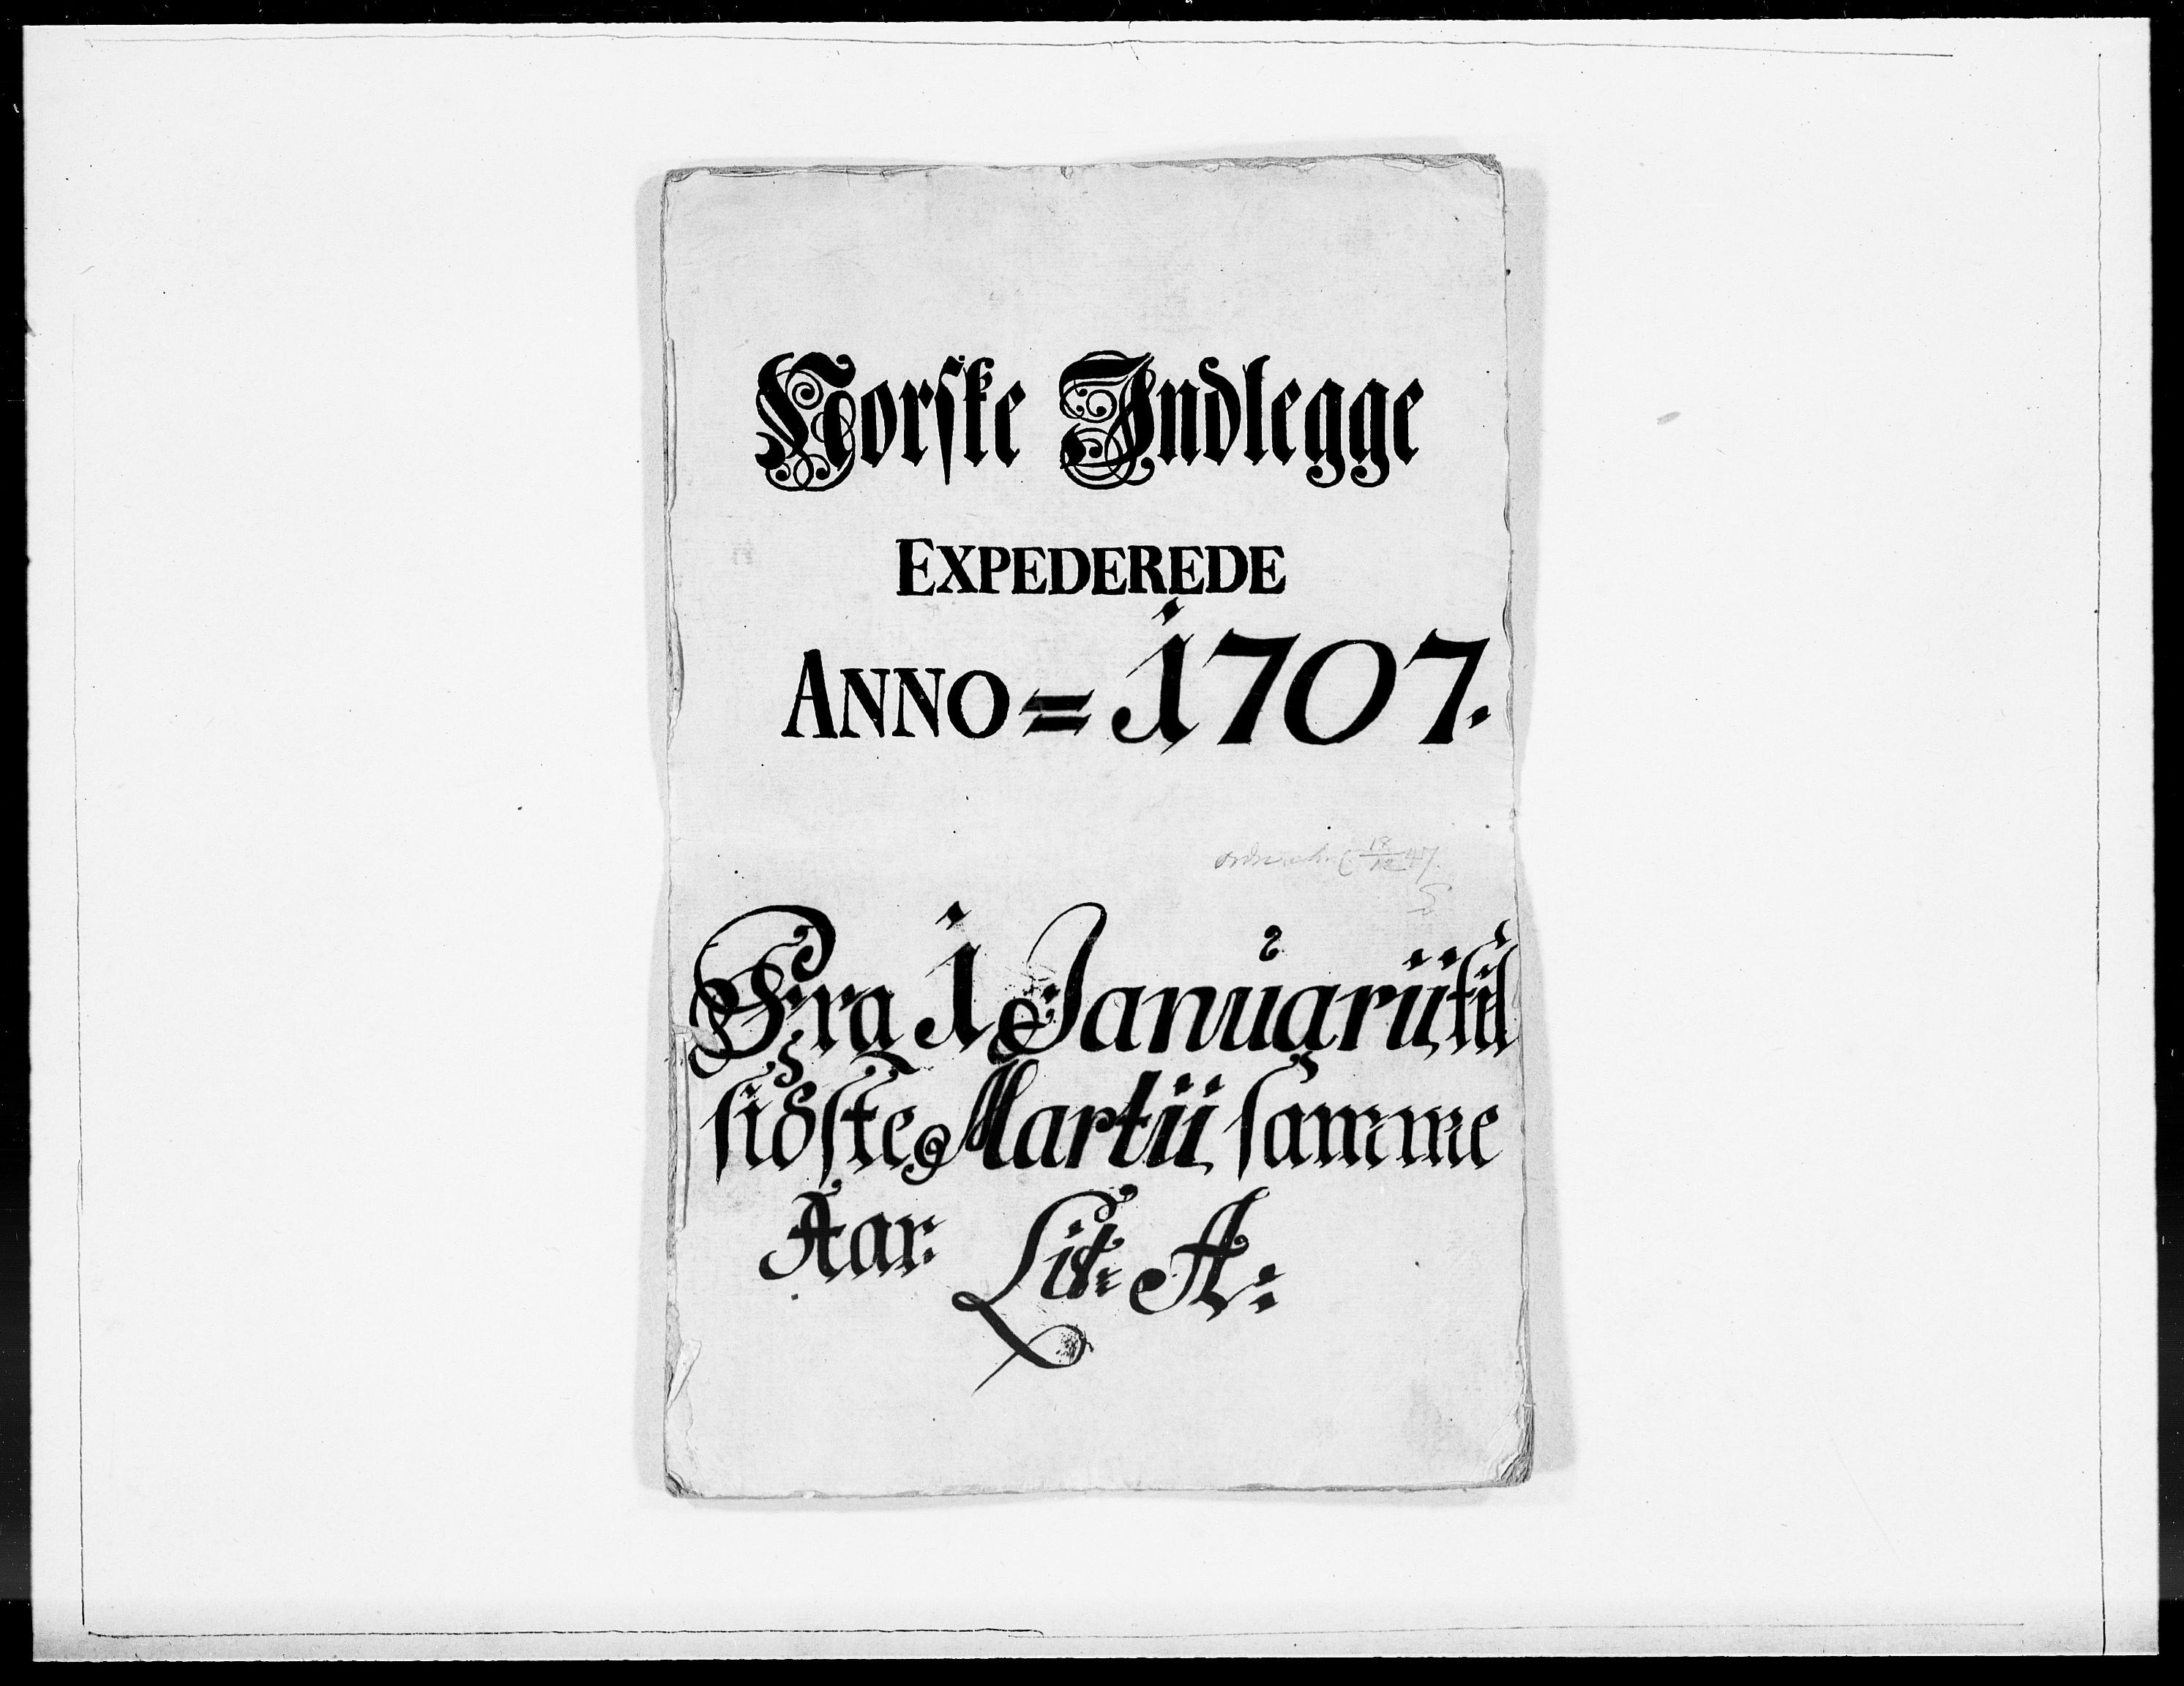 Norske Indlegge
EXPEDEREDE
ANNO = 1707.
18/12 47.
Fra 1 Januarii til
sidste Martii samme
Aar: Lit: A: